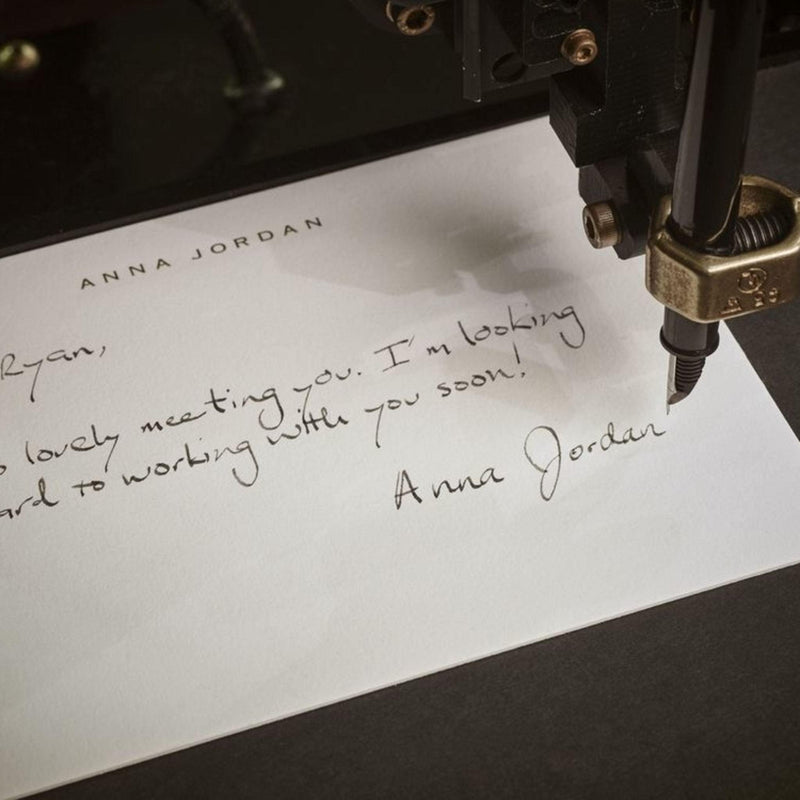 ANNA JORDAN
Ryan,
lovely meeting you. I'm looking
to working with you soon!
Anna Jordan